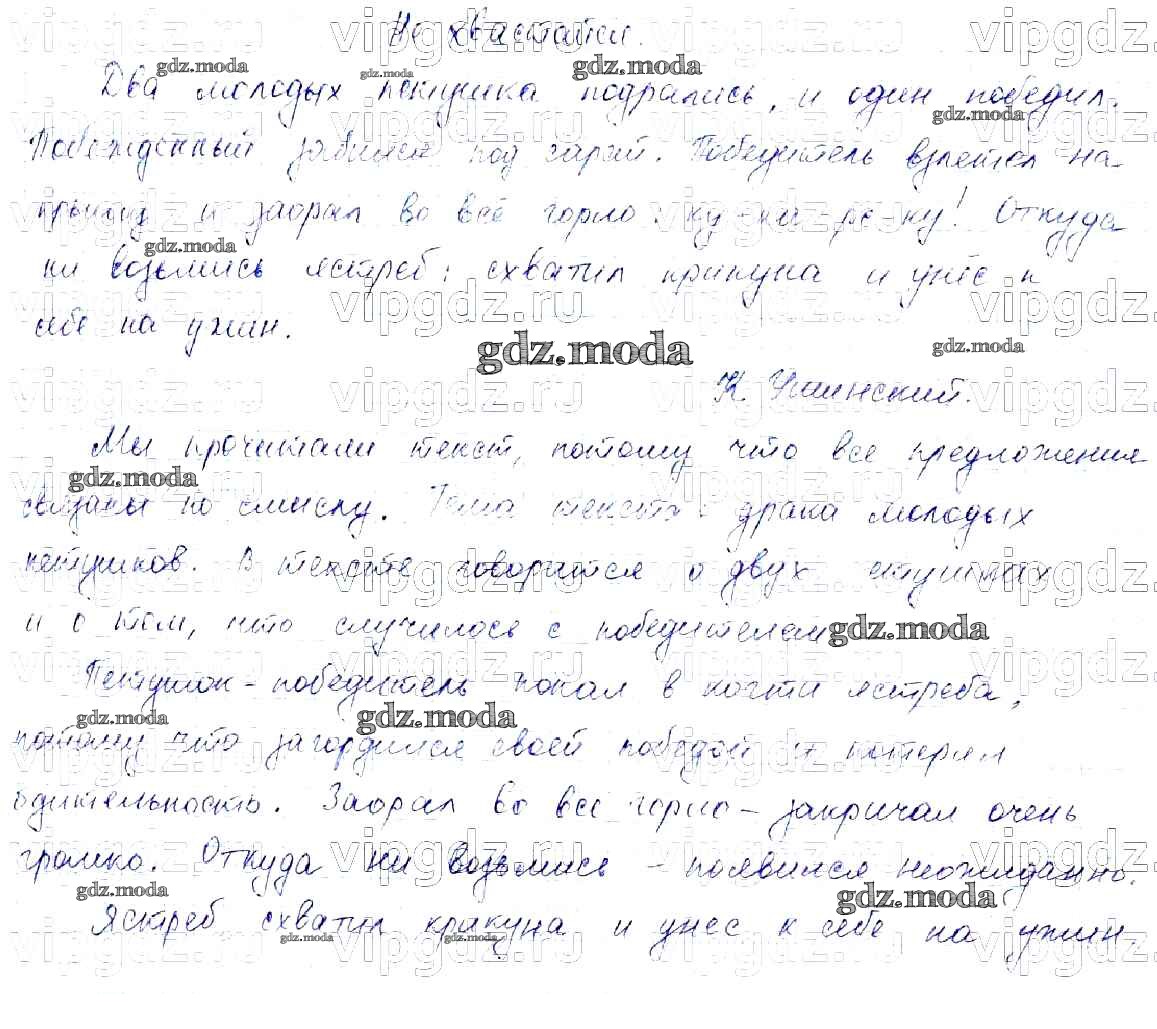 Не хвастайся.
Два молодых петушка подрались, и один победил.
Побежденный забился под сарай. Победитель взлетел на
крышу и заорал во всё горло: ку-ка-ре-ку! Откуда
ни возьмись ястреб: схватил крикуна и унёс к
себе на ужин.
К. Ушинский.
Мы прочитали текст, потому что все предложения
связаны по смыслу. Тема текста: драка молодых
петушков. В тексте говорится о двух петушках
и о том, что случилось с победителем
Петушок-победитель попал в когти ястреба,
потому что загордился своей победой и потерял
бдительность. Заорал во все горло - закричал очень
громко. Откуда ни возьмись - появился неожиданно.
Ястреб схватил крикуна и унес к себе на ужин.
gdz.moda
vipgdz.ru